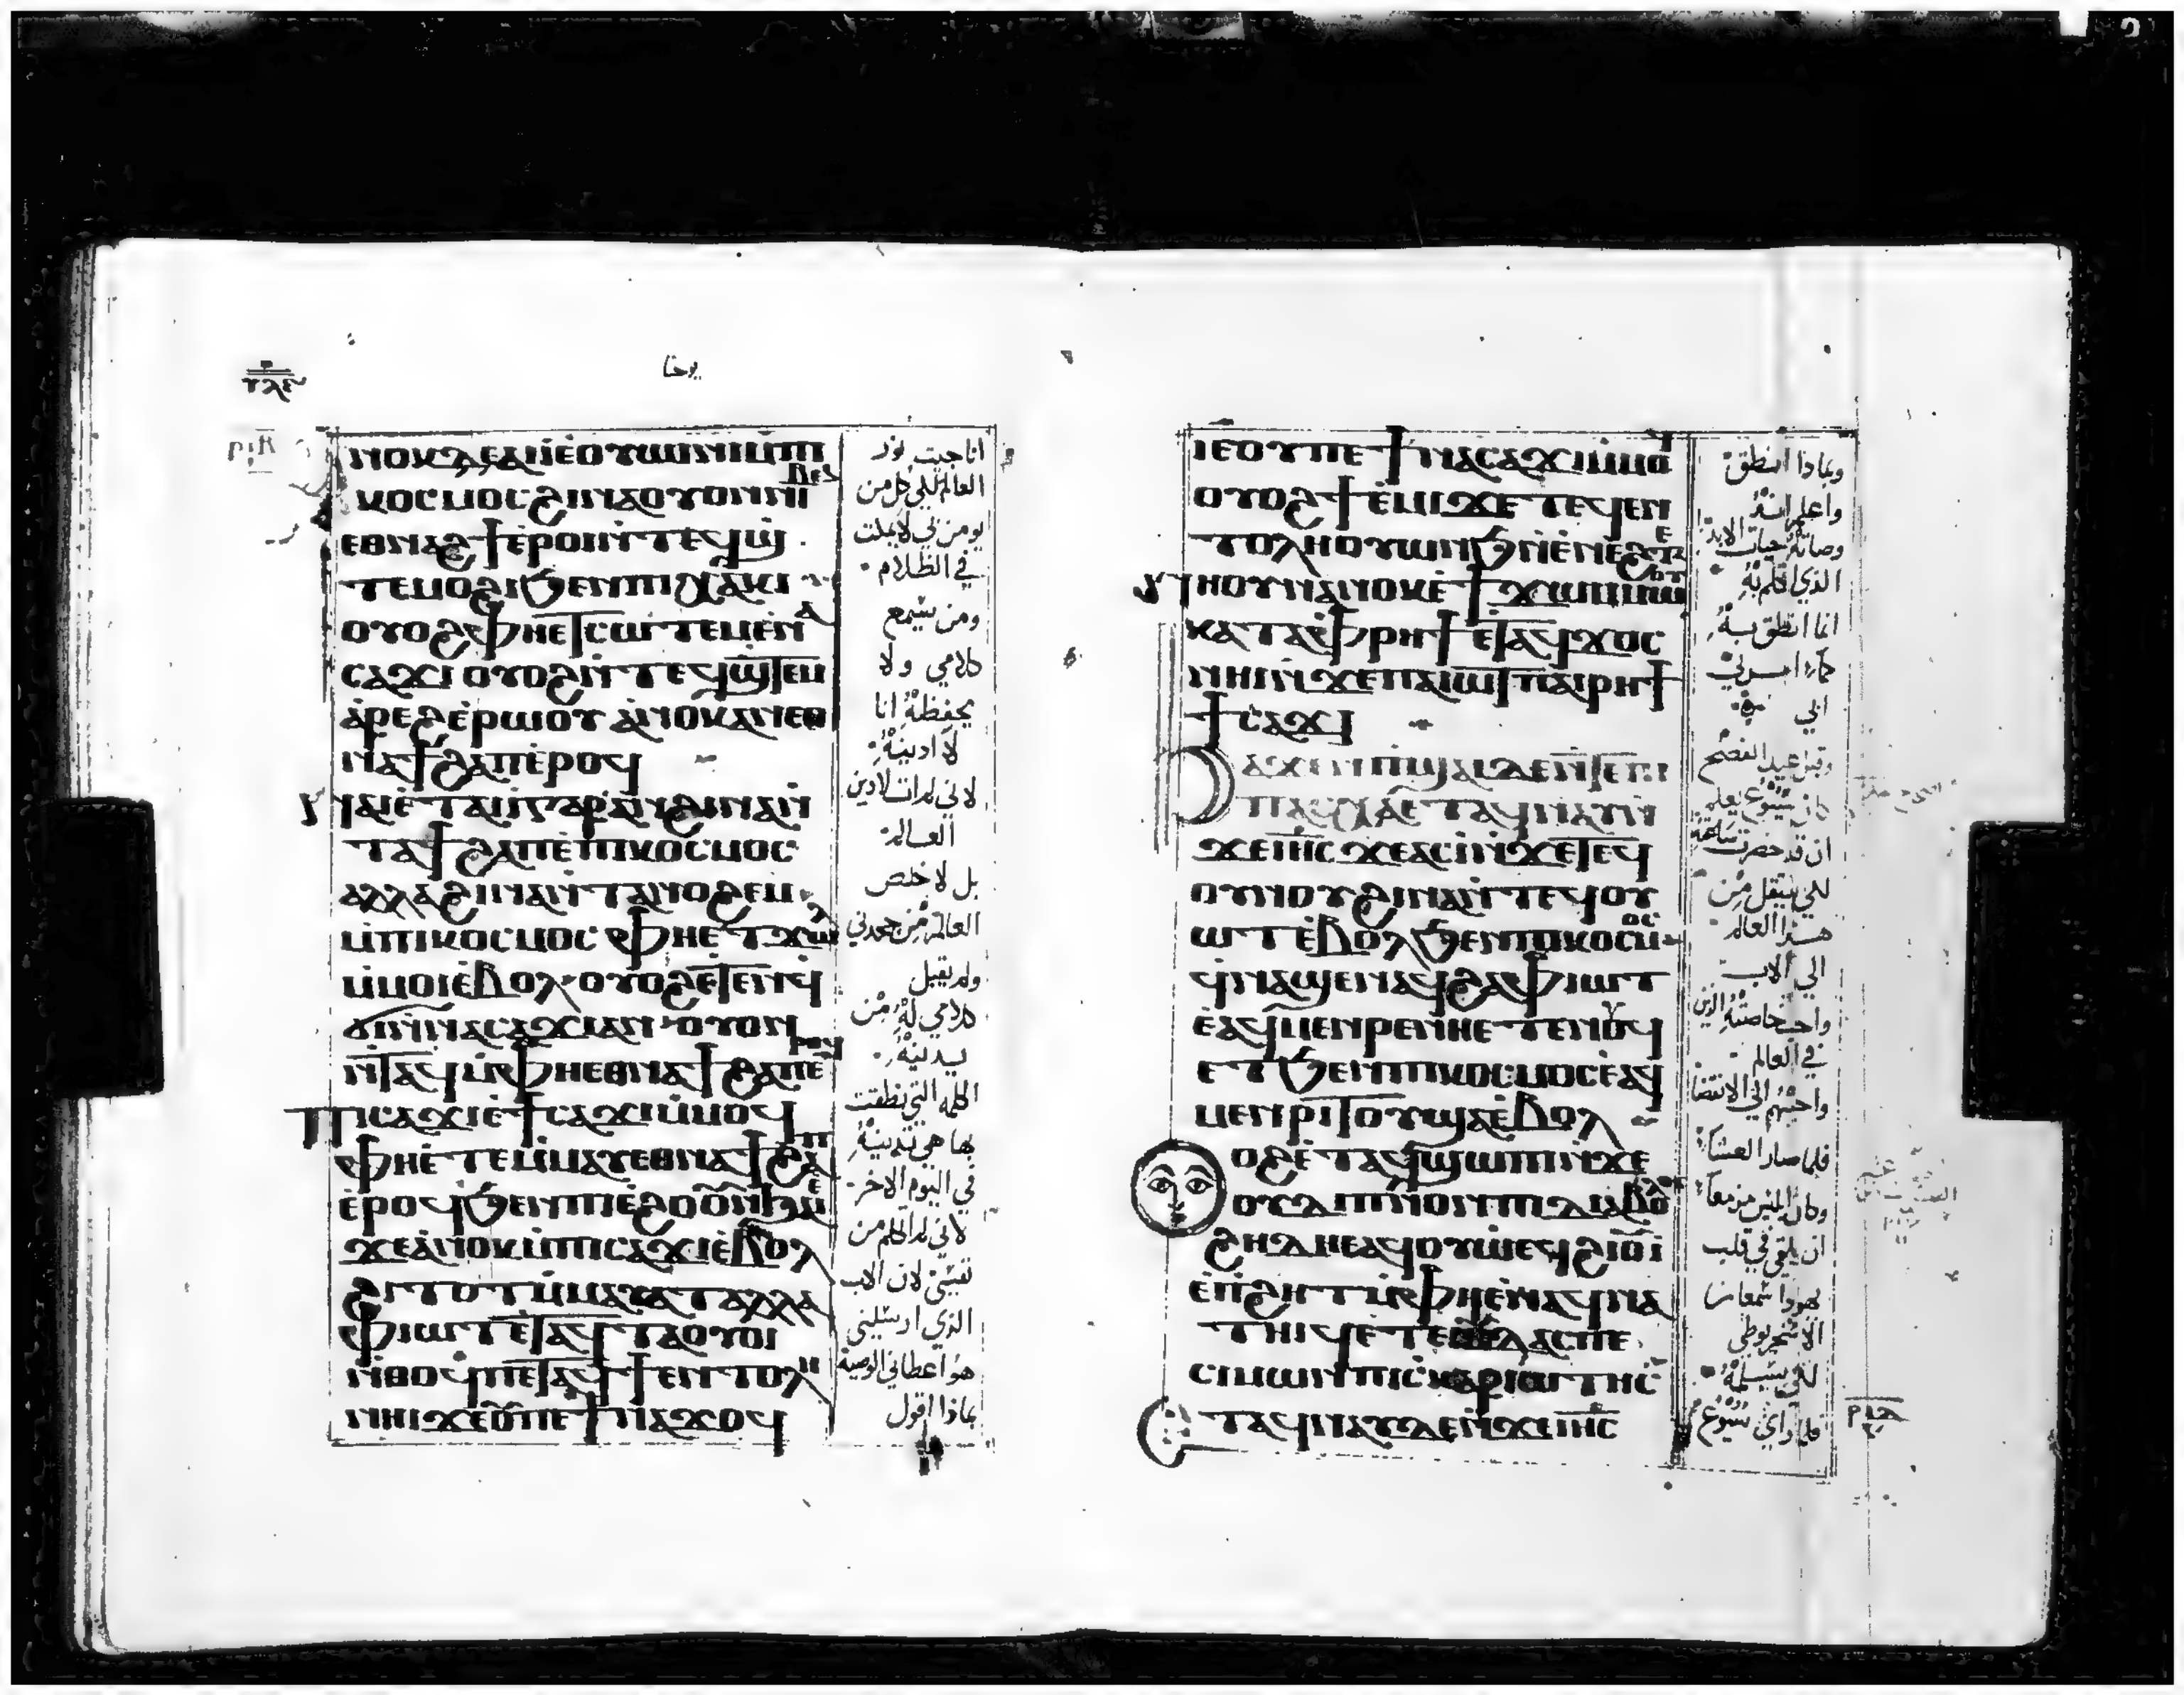 يوحنا
ⲛⲟⲕ ⲇⲉ ⲁⲓⲓ ⲉⲟⲩⲱⲓⲛⲓ ⲙⲡⲓ
ⲕⲟⲥⲙⲟⲥ ϩⲓⲛⲁ ⲟⲩⲟⲛ ⲛⲓⲃⲉⲛ
ⲉⲑⲛⲁϩϯ ⲉⲣⲟⲓ ⲛⲧⲉϥϣ
ⲧⲉⲙⲟϩⲓ ϧⲉⲛ ⲡⲓⲭⲁⲕⲓ
ⲟⲩⲟϩ ⲫⲏⲉⲧⲥⲱⲧⲉⲙ ⲉⲛⲁ
ⲥⲁϫⲓ ⲟⲩⲟϩ ⲛⲧⲉϥϣⲧⲉⲙ
ⲁⲣⲉϩ ⲉⲣⲱⲟⲩ ⲁⲛⲟⲕ ⲁⲛ ⲉⲑ
ⲛⲁϯϩⲁⲡ ⲉⲣⲟϥ
ⲛⲁⲓ ⲉⲧⲁⲓ ⲅⲁⲣ ⲁⲛ ϩⲓⲛⲁ ⲛ
ⲧⲁϯϩⲁⲡ ⲉⲡⲓⲕⲟⲥⲙⲟⲥ
ⲁⲗⲗⲁ ϩⲓⲛⲁ ⲛⲧⲁⲛⲟϩⲉⲙ
ⲙⲡⲓⲕⲟⲥⲙⲟⲥ ⲫⲏⲉⲧϫⲱ
ⲙⲙⲟⲓ ⲉⲃⲟⲗ ⲟⲩⲟϩ ⲉⲧⲉⲛϥ
ϭⲓ ⲛⲛⲁⲥⲁϫⲓ ⲁⲛ ⲟⲩⲟⲛ
ⲛⲧⲁϥ ⲙⲫⲏⲉⲑⲛⲁϯϩⲁⲡ ⲉⲣⲟϥ
ⲡⲓⲥⲁϫⲓ ⲉϯⲥⲁϫⲓ ⲙⲙⲟϥ
ⲫⲏⲉⲧⲉⲙⲙⲁⲩ ⲉⲑⲛⲁϯϩⲁⲡ
ⲉⲣⲟϥ ϧⲉⲛ ⲡⲓⲉϩⲟⲟⲩ ⲛϧⲁⲉ
ϫⲉ ⲁⲛⲟⲕ ⲙⲡⲓⲥⲁϫⲓ ⲉⲃⲟⲗ
ϩⲓⲧⲟⲧ ⲙⲙⲁⲩⲁⲧ ⲁⲗⲗⲁ
ⲫⲓⲱⲧ ⲉⲧⲁϥⲧⲁⲟⲩⲟⲓ
ⲛⲑⲟϥ ⲡⲉⲧⲁϥϯ ⲉⲛⲧⲟⲗⲏ
ⲛⲏⲓ ϫⲉ ⲟⲩ ⲡⲉϯⲛⲁϫⲟϥ
انا جيت نور
العالم للي كل من
يومن بي لا يلبث
في الظلام
ومن يسمع
كلامي ولا
يحفظه انا
لا ادينه
لاني لم ات لادين
العالم
بل لاخلص
العالم من جحدني
ولم يقبل
كلامي له من
يدينه
الكلمه التي نطقت
بها هي تدينه
في اليوم الاخر
لاني لم اتكلم من
نفسي لان الاب
الذي ارسلني
هو اعطاني الوصية
بماذا اقول
ⲓⲉ ⲟⲩ ⲡⲉϯⲛⲁⲥⲁϫⲓ ⲙⲙⲟϥ
ⲟⲩⲟϩ ϯⲉⲙⲓ ϫⲉ ⲧⲉϥⲉⲛ
ⲧⲟⲗⲏ ⲟⲩⲱⲛϧ ⲛⲉⲛⲉϩ ⲧⲉ
ⲛⲏ ⲟⲩⲛ ⲁⲛⲟⲕ ⲉϯϫⲱ ⲙⲙⲱⲟⲩ
ⲕⲁⲧⲁ ⲫⲣⲏϯ ⲉⲧⲁϥϫⲟⲥ
ⲛⲏⲓ ⲛϫⲉ ⲡⲁⲓⲱⲧ ⲡⲁⲓⲣⲏϯ
ϯⲥⲁϫⲓ
ϧⲁϫⲉⲛ ⲡϣⲁⲓ ⲇⲉ ⲛⲧⲉ ⲡⲓ
ⲡⲁⲥⲭⲁ ⲉⲧⲁϥⲛⲁⲩ ⲛ
ϫⲉ ⲓⲏⲥ ϫⲉ ⲁⲥⲓ ⲛϫⲉ ⲧⲉϥ
ⲟⲩⲛⲟⲩ ϩⲓⲛⲁ ⲛⲧⲉϥⲟⲩ
ⲱⲧⲉⲃ ⲉⲃⲟⲗ ϧⲉⲛ ⲡⲓⲕⲟⲥⲙⲟⲥ
ϥⲛⲁϣⲉⲛⲁϥ ϩⲁ ⲫⲓⲱⲧ
ⲉⲁϥⲙⲉⲛⲣⲉ ⲛⲏⲉⲧⲉⲛⲟⲩϥ
ⲉⲧϧⲉⲛ ⲡⲓⲕⲟⲥⲙⲟⲥ ⲉⲁϥ
ⲙⲉⲛⲣⲓⲧⲟⲩ ϣⲁⲉⲃⲟⲗ
ⲟⲩⲟϩ ⲉⲧⲁϥϣⲱⲡⲓ ⲛϫⲉ
ⲟⲩⲇⲓⲡⲛⲟⲛ ⲡⲓⲇⲓⲁⲃⲟⲗⲟⲥ
ϩⲏⲇⲏ ⲛⲉⲁϥⲟⲩⲱ ⲉϥϩⲓⲟⲩⲓ
ⲉⲡϩⲏⲧ ⲙⲫⲏⲉⲛⲁϥⲛⲁ
ⲧⲏⲓϥ ⲉⲧⲉ ⲓⲟⲩⲇⲁⲥ ⲡⲉ
ⲥⲓⲙⲱⲛ ⲡⲓⲥⲕⲁⲣⲓⲱⲧⲏⲥ
ⲉⲧⲁϥⲛⲁⲩ ⲇⲉ ⲛϫⲉ ⲓⲏⲥ
وبماذا انطق
واعلم ان
وصاته حيات الابد
انما انطق به
ابي
وقبل عيد الفصح
كان يسوع يعلم
ان قد حضرت ساعته
لكي ينتقل من
هذا العالم
الي الاب
واحب خاصته الذين
في العالم
واحبهم الي الانقضا
فلما صار العشا
ان يلقي في قلب
يهودا شمعان
الاسخريوطي
لكي يسلمه
فلما راي يسوع